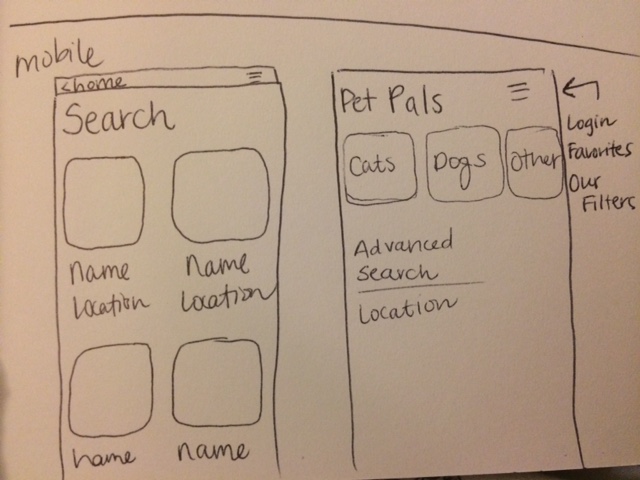 mobile
<home
Search
name
Location
name
Location
name
name
Pet Pals
Cats
Dogs
Other
Advanced
Search
Location
Login
Favorites
Our
Filters